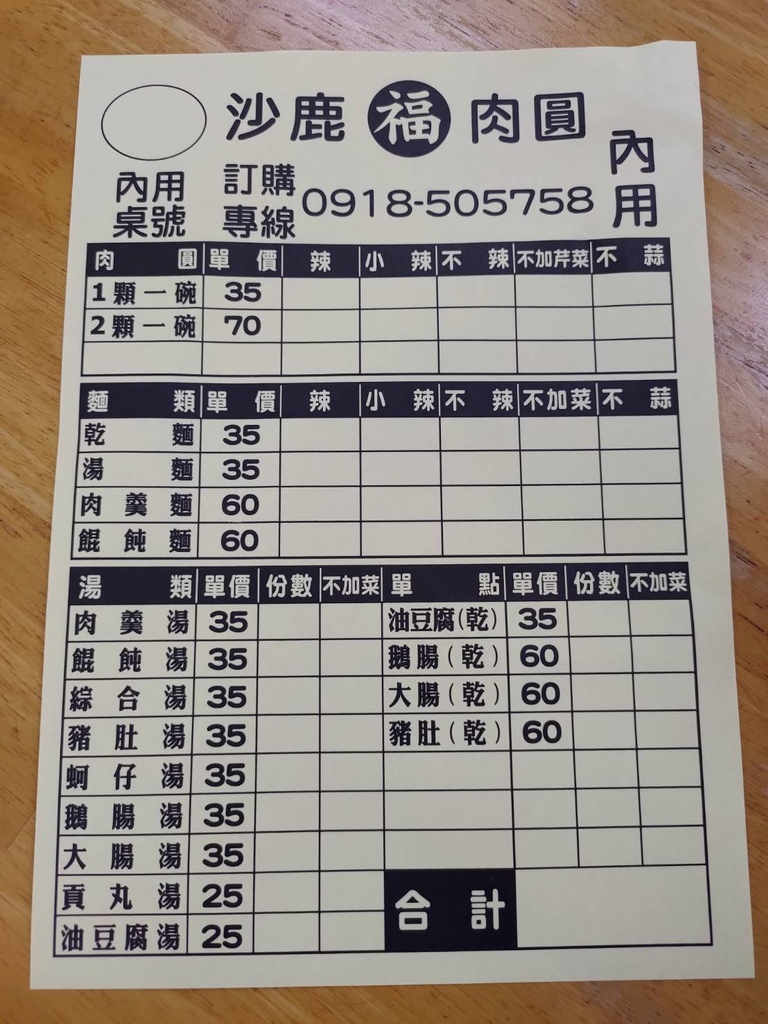 沙鹿 福 肉圓
內用
內用桌號
訂購專線 0918-505758
肉圓 單價 辣 小辣 不辣 不加芹菜 不蒜
1顆一碗 35
2顆一碗 70
麵類 單價 辣 小辣 不辣 不加菜 不蒜
乾麵 35
湯麵 35
肉羹麵 60
餛飩麵 60
湯類 單價 份數 不加菜 單點 單價 份數 不加菜
肉羹湯 35 油豆腐(乾) 35
餛飩湯 35 鵝腸(乾) 60
綜合湯 35 大腸(乾) 60
豬肚湯 35 豬肚(乾) 60
蚵仔湯 35
鵝腸湯 35
大腸湯 35
貢丸湯 25
合計
油豆腐湯 25